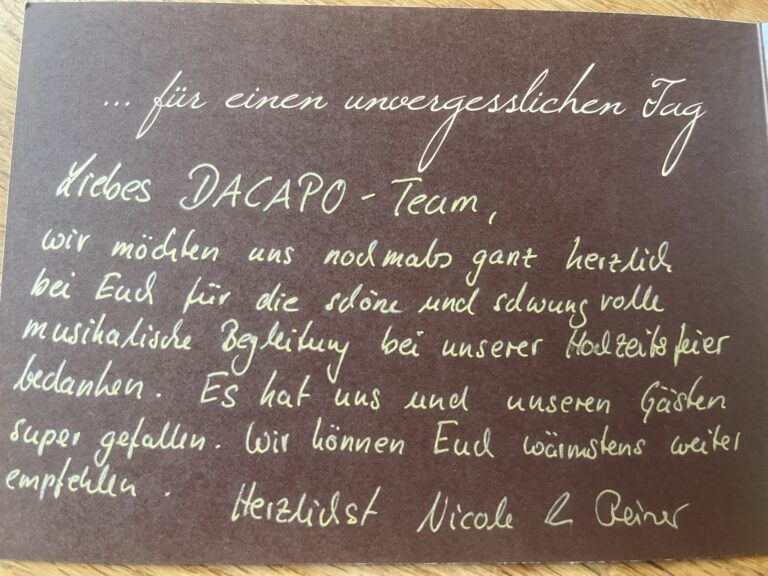 ... für einen unvergesslichen Tag
Liebes DACAPO - Team,
wir möchten uns nochmals ganz herzlich
bei Euch für die schöne und schwungvolle
musikalische Begleitung bei unserer Hochzeitsfeier
bedanken. Es hat uns und unseren Gästen
super gefallen. Wir können Euch wärmstens weiter
empfehlen.
Herzlichst Nicole & Reiner